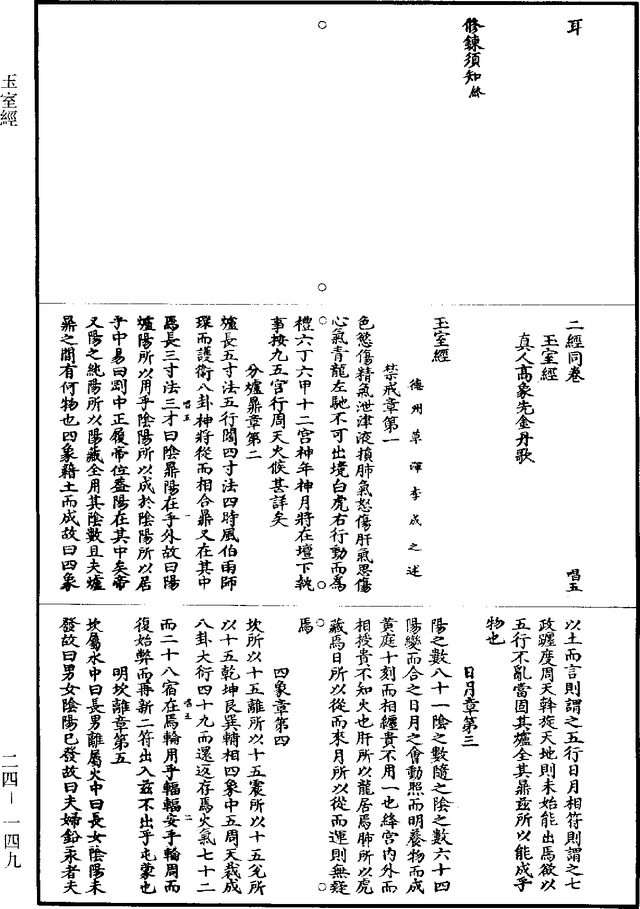 耳
修鍊須知終
二經同卷 唱五
玉室經
真人高象先金丹歌
玉室經
德州草澤李成之述
禁戒章第一
色慾傷精氣泄津液損肺氣怒傷肝氣思傷
心氣青龍左馳不可出境白虎右行動而為
禮六丁六甲十二宮神年神月將在壇下執
事按九五宮行周天火候甚詳矣
分爐鼎章第二
爐長五寸法五行闊四寸法四時風伯雨師
環而護衛八卦神將從而相合鼎又在其中
焉長三寸法三才曰陰鼎陽在乎外故曰陽
唱五 一
爐陽所以用乎陰陽所以成於陰陽所以居
乎中易曰剛中正履帝位蓋陽在其中矣帝
又陽之純陽所以陽藏全用其陰數且夫爐
鼎之間有何物也四象藉土而成故曰四象
以土而言則謂之五行日月相符則謂之七
政躔度周天斡旋天地則未始能出焉欲以
五行不亂當固其爐全其鼎茲所以能成乎
物也
日月章第三
陽之數八十一陰之數隨之陰之數六十四
陽變而合之日月之會動照而明養物而成
黃庭十刻而相纏貴不用一也絳宮內外而
相授貴不知火也肝所以龍居焉肺所以虎
藏焉日所以從而來月所以從而運則無疑
焉
四象章第四
坎所以十五離所以十五震所以十五兌所
以十五乾坤艮巽輔相四象中五周天哉成
八卦大衍四十九而還返存焉火氣七十二
唱五 二
而二十八宿在焉輪用乎輻輻安乎輪周而
復始弊而再新二符出入茲不出乎屯蒙也
明坎離章第五
坎屬水中曰長男離屬火中曰長女陰陽未
發故曰男女陰陽已發故曰夫婦鉛汞者夫
玉室經
二四－一四九